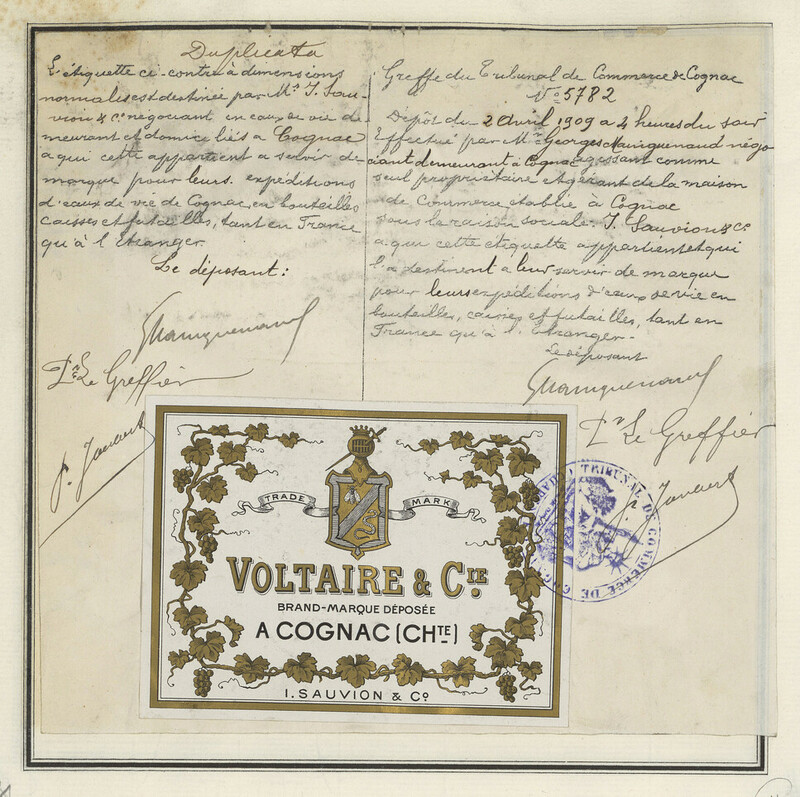 Duplicata
L'étiquette ci-contre à dimensions
normales est destinée par Mrs J. Sau-
vion & Cie négociant en eaux de vie de
meurant et domiciliés à Cognac
a qui cette appartient a servir de
marque pour leurs expéditions
d'eaux de vie de Cognac, en bouteilles
caisses et futailles, tant en France
qu'à l'Etranger.
Le déposant:
GMainguenaud
Pr Le Greffier
Greffe du Tribunal de Commerce de Cognac
No 5782
Dépôt du 2 Avril 1909 a 4 heures du soir
Effectué par Mr Georges Mainguenaud négo
ciant demeurant à Cognac agissant comme
seul propriétaire et gérant de la maison
de Commerce établie à Cognac
sous la raison sociale: J. Sauvion & Co
a qui cette étiquette appartient et qui
l'a destinent a leur servir de marque
pour leurs expéditions d'eaux de vie en
bouteilles, caisses et futailles, tant en
France qu'à l'Etranger.
Le déposant
GMainguenaud
Pr Le Greffier
TRADE MARK
VOLTAIRE & CIE.
BRAND-MARQUE DÉPOSÉE
A COGNAC (CHTE)
I. SAUVION & Co
TRIBUNAL DE COMMERCE DE COGNAC